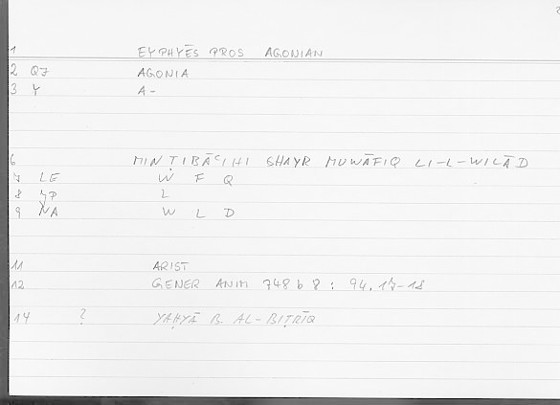 1 EYPHYĒS PROS AGONIAN
2 QJ AGONIA
3 Y A-
6 MIN ṬIBĀʿIHI GHAYR MUWĀFIQ LI-L-WILĀD
7 LE W F Q
8 L
9 NA W L D
11 ARIST
12 GENER ANIM 748 b 8 : 94.17-18
14 ? YAḤYĀ B. AL-BIṬRĪQ